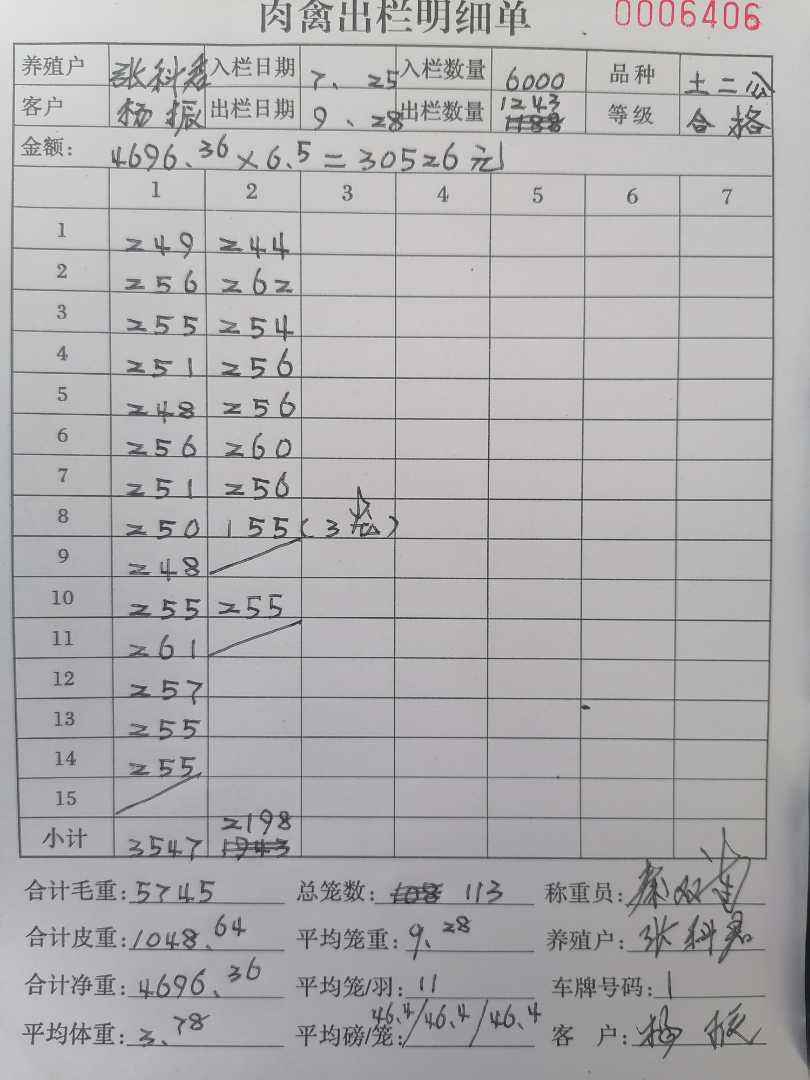 肉禽出栏明细单 0006406
养殖户 张科君 入栏日期 7.25 入栏数量 6000 品种 土二公
客户 杨振 出栏日期 9.28 出栏数量 1243 等级 合格
金额: 4696.36×6.5=30526元
1 2 3 4 5 6 7
1 249 244
2 256 262
3 255 254
4 251 256
5 248 256
6 256 260
7 251 256
8 250 155(3笼)
9 248
10 255 255
11 261
12 257
13 255
14 255
15
小计 3547 2198
合计毛重: 5745 总笼数: 113 称重员:
合计皮重: 1048.64 平均笼重: 9.28 养殖户: 张科君
合计净重: 4696.36 平均笼/羽: 11 车牌号码: 1
平均体重: 3.78 平均磅/笼: 46.4/46.4/46.4 客户: 杨振